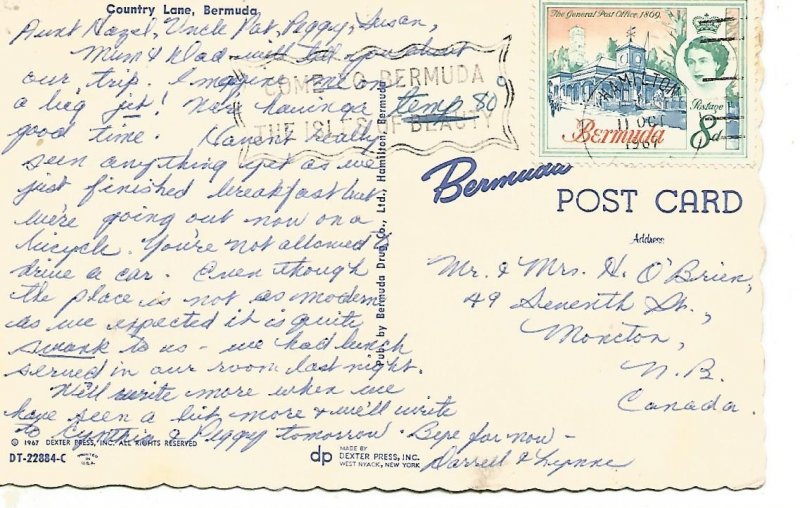 Country Lane, Bermuda
Aunt Hazel, Uncle Pat, Peggy, Susan,
Mum & Dad will tell you about
our trip. Imagine me on
a big jet! We're having a temp. 80°
good time. Haven't really
seen anything yet as we
just finished breakfast but
we're going out now on a
bicycle. You're not allowed to
drive a car. Even though
the place is not as modern
as we expected it is quite
swank to us - we had lunch
served in our room last night.
We'll write more when we
have seen a bit more & we'll write
to Cynthia & Peggy tomorrow. Bye for now -
Darrell & Lynne
© 1967 DEXTER PRESS, INC. ALL RIGHTS RESERVED
DT-22884-C
PRINTED IN U.S.A.
dp
MADE BY
DEXTER PRESS, INC.
WEST NYACK, NEW YORK
Pub. by Bermuda Drug Co., Ltd., Hamilton, Bermuda
COME TO BERMUDA
THE ISLES OF BEAUTY
The General Post Office, 1869.
HAMILTON
11 OCT
Postage
Bermuda
8d
Bermuda
POST CARD
Address
Mr. & Mrs. H. O'Brien,
49 Seventh St.,
Moncton,
N.B.
Canada.